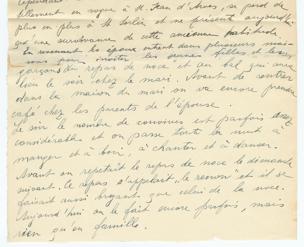 tellement en vogue à St Jean d'Arves, se perd de
plus en plus à St Sorlin et ne présente aujourd'hui
qu'une survivance de cette ancienne habitude.
les époux entrent dans plusieurs mai-
sons pour inviter les jeunes filles et les
garçons du repas de noce et au bal qui aura
lieu le soir chez le mari. Avant de rentrer
dans la maison du mari on va encore prendre
café chez les parents de l'épouse.
Le soir le nombre de convives est parfois assez
considérable et on passe toute la nuit à
manger et à boire, à chanter et à danser.
Avant on répétait le repas de noce le dimanche
suivant. Le repas s'appelait "le renvon" et il se
faisait aussi bruyant que celui de la noce.
Aujourd'hui on le fait encore parfois, mais
rien qu'en famille.